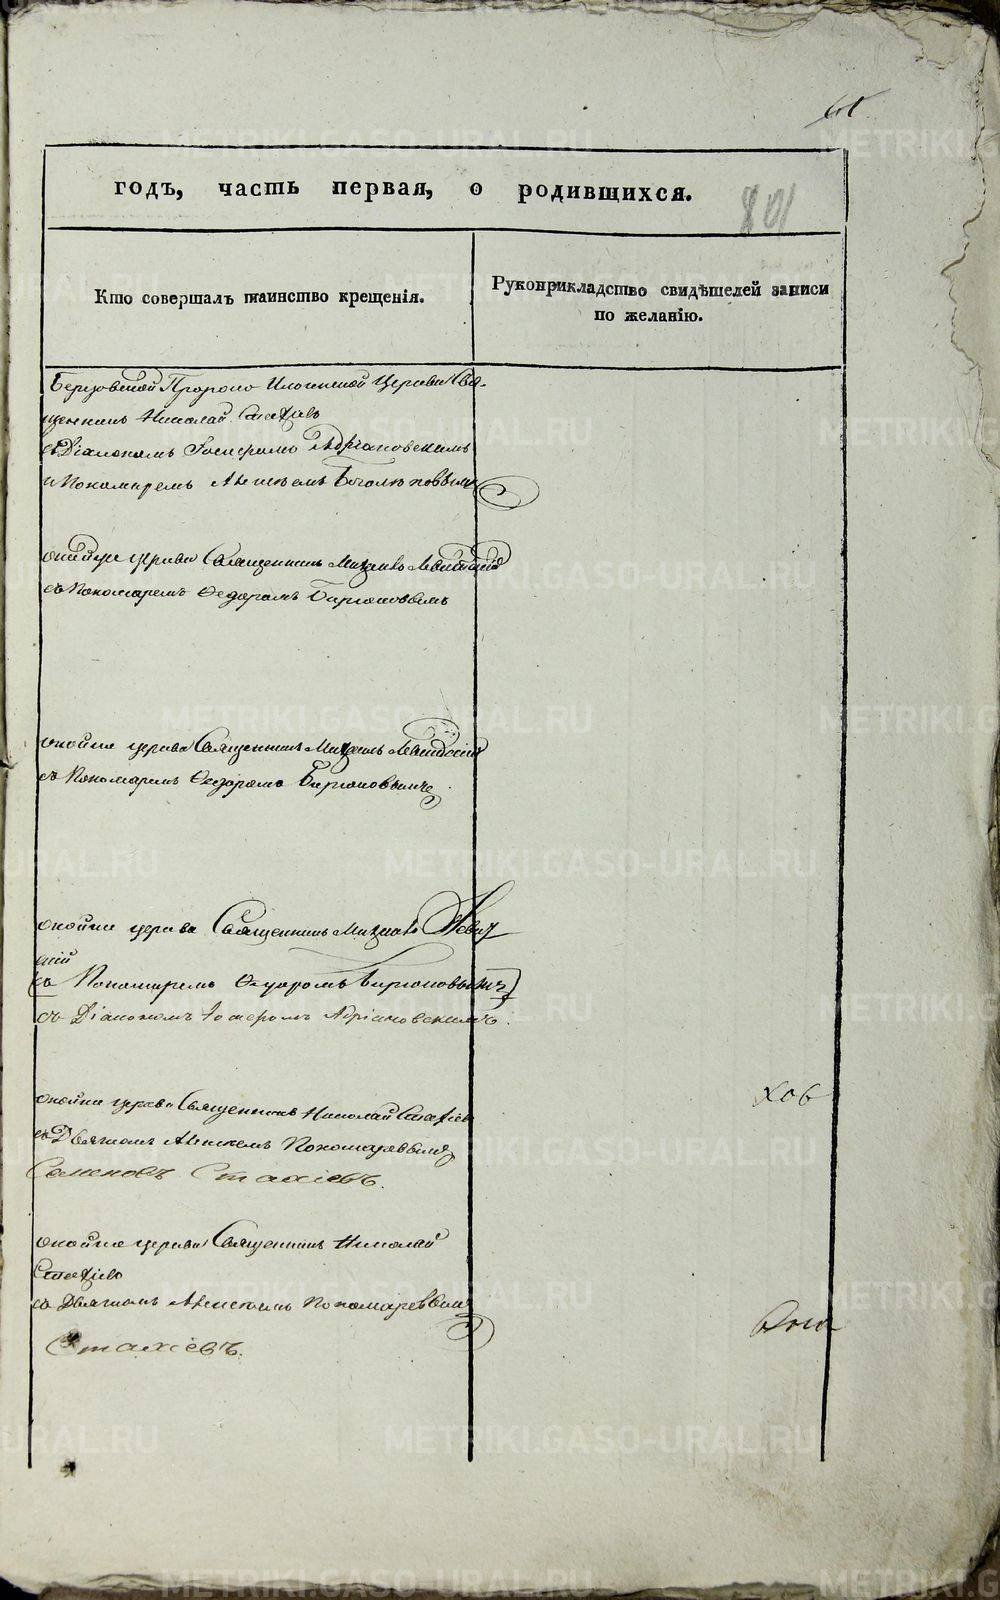 METRIKI.GASO-URAL.RU
годъ, часть первая, о родившихся.
801
Кто совершалъ таинство крещенія.
Рукоприкладство свидѣтелей записи
по желанію.
Березовской Пророко Илоинской Церкви Свя-
щенникъ Николай Стахіевъ
съ Діакономъ Адріановскимъ
и Пономаремъ Алексѣемъ Боголѣповымъ
церкви Священникъ Михаилъ Левитскій
съ Пономаремъ Ѳедоромъ Бирюковымъ
оной же церкви Священникъ Михаилъ Левитскій
съ Пономаремъ Ѳедоромъ Бирюковымъ
оной же церкви Священникъ Михаилъ Левит
скій
(съ Пономаремъ Ѳедоромъ Бирюковымъ)
съ Діакономъ Адріановскимъ.
оной же церкви Священникъ Николай Стахіевъ
съ Дьячкомъ Алексѣемъ Пономаревымъ
Стахіевъ.
оной же церкви Священникъ Николай
Стахіевъ
съ Дьячкомъ Алексѣемъ Пономаревымъ
Стахіевъ.
хов